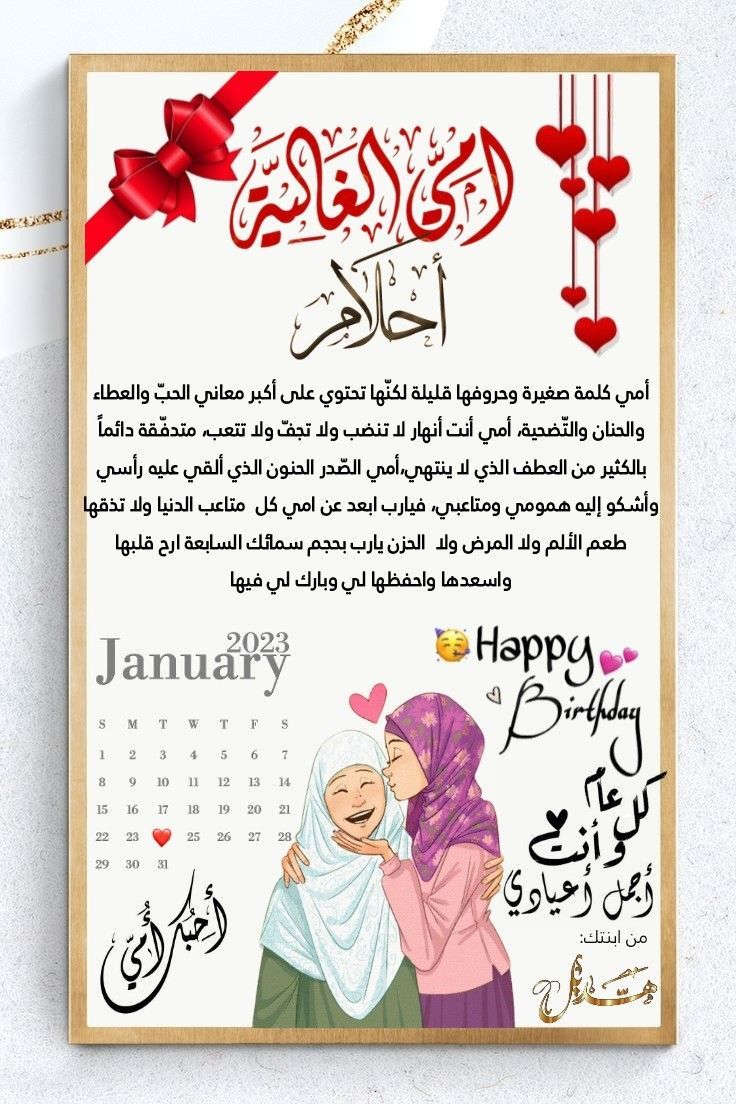 امي الغالية
أحلام
أمي كلمة صغيرة وحروفها قليلة لكنّها تحتوي على أكبر معاني الحبّ والعطاء
والحنان والتّضحية، أمي أنت أنهار لا تنضب ولا تجفّ ولا تتعب، متدفّقة دائماً
بالكثير من العطف الذي لا ينتهي،أمي الصّدر الحنون الذي ألقي عليه رأسي
وأشكو إليه همومي ومتاعبي، فيارب ابعد عن امي كل متاعب الدنيا ولا تذقها
طعم الألم ولا المرض ولا الحزن يارب بحجم سمائك السابعة ارح قلبها
واسعدها واحفظها لي وبارك لي فيها
2023
January
S M T W T F S
1 2 3 4 5 6 7
8 9 10 11 12 13 14
15 16 17 18 19 20 21
22 23 25 26 27 28
29 30 31
Happy
Birthday
كل عام
وأنت
أجمل أعيادي
أحبك أمي
من ابنتك: